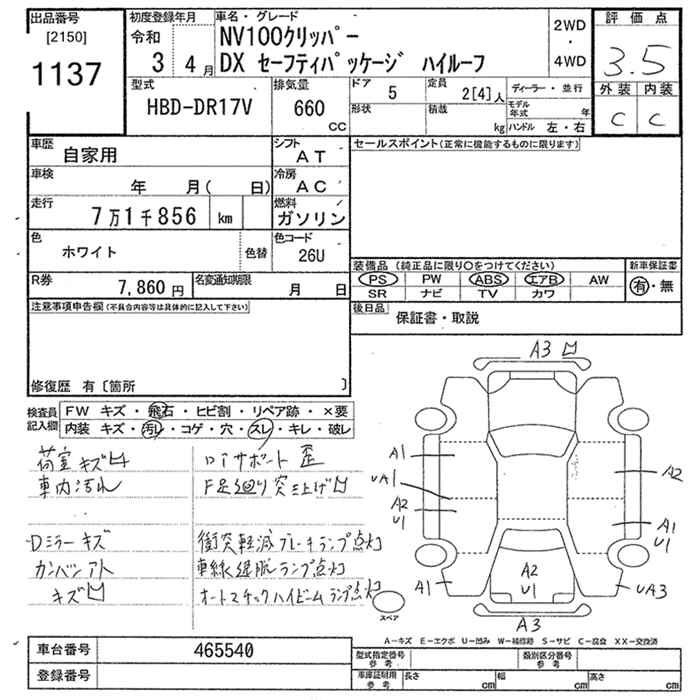 出品番号
[2150]
1137
初度登録年月
令和
3 4月
車名・グレード
NV100クリッパー
DX セーフティパッケージ ハイルーフ
2WD
・
4WD
評価点
3.5
外装 内装
C C
型式
HBD-DR17V
排気量
660
CC
ドア 5
定員 2[4]人
形状
積載 kg
ディーラー・並行
モデル年式 年
ハンドル 左・右
車歴
自家用
シフト
AT
車検
年 月( 日)
冷房
AC
走行
7万1千856 km
燃料
ガソリン
色
ホワイト
色替
色コード
26U
R券
7,860円
名変通知期限
月 日
セールスポイント(正常に機能するものに限ります)
装備品 (純正品に限り○をつけてください)
PS PW ABS エアB AW
SR ナビ TV カワ
新車保証書
有・無
後日品
保証書・取説
注意事項申告欄(不具合内容等は具体的に記入して下さい)
修復歴 有〔箇所 〕
検査員
記入欄
FW キズ・飛石・ヒビ割・リペア跡・×要
内装 キズ・汚れ・コゲ・穴・スレ・キレ・破レ
荷室キズ凹
車内汚れ
Dミラーキズ
カンバンアト
キズ凹
Dイサポート 歪
F足廻り突上げ凹
衝突軽減ブレーキランプ点灯
車線逸脱ランプ点灯
オートマチックハイビームランプ点灯
A3凹
A1
UA1
A2
U1
A1
A2
A1
U1
UA3
A2
U1
A3
スペア
A-キズ E-エクボ U-凹み W-補修跡 S-サビ C-腐食 XX-交換済
車台番号
465540
登録番号
型式指定番号
参考
類別区分番号
参考
車庫証明用
参考
長さ cm
幅 cm
高さ cm